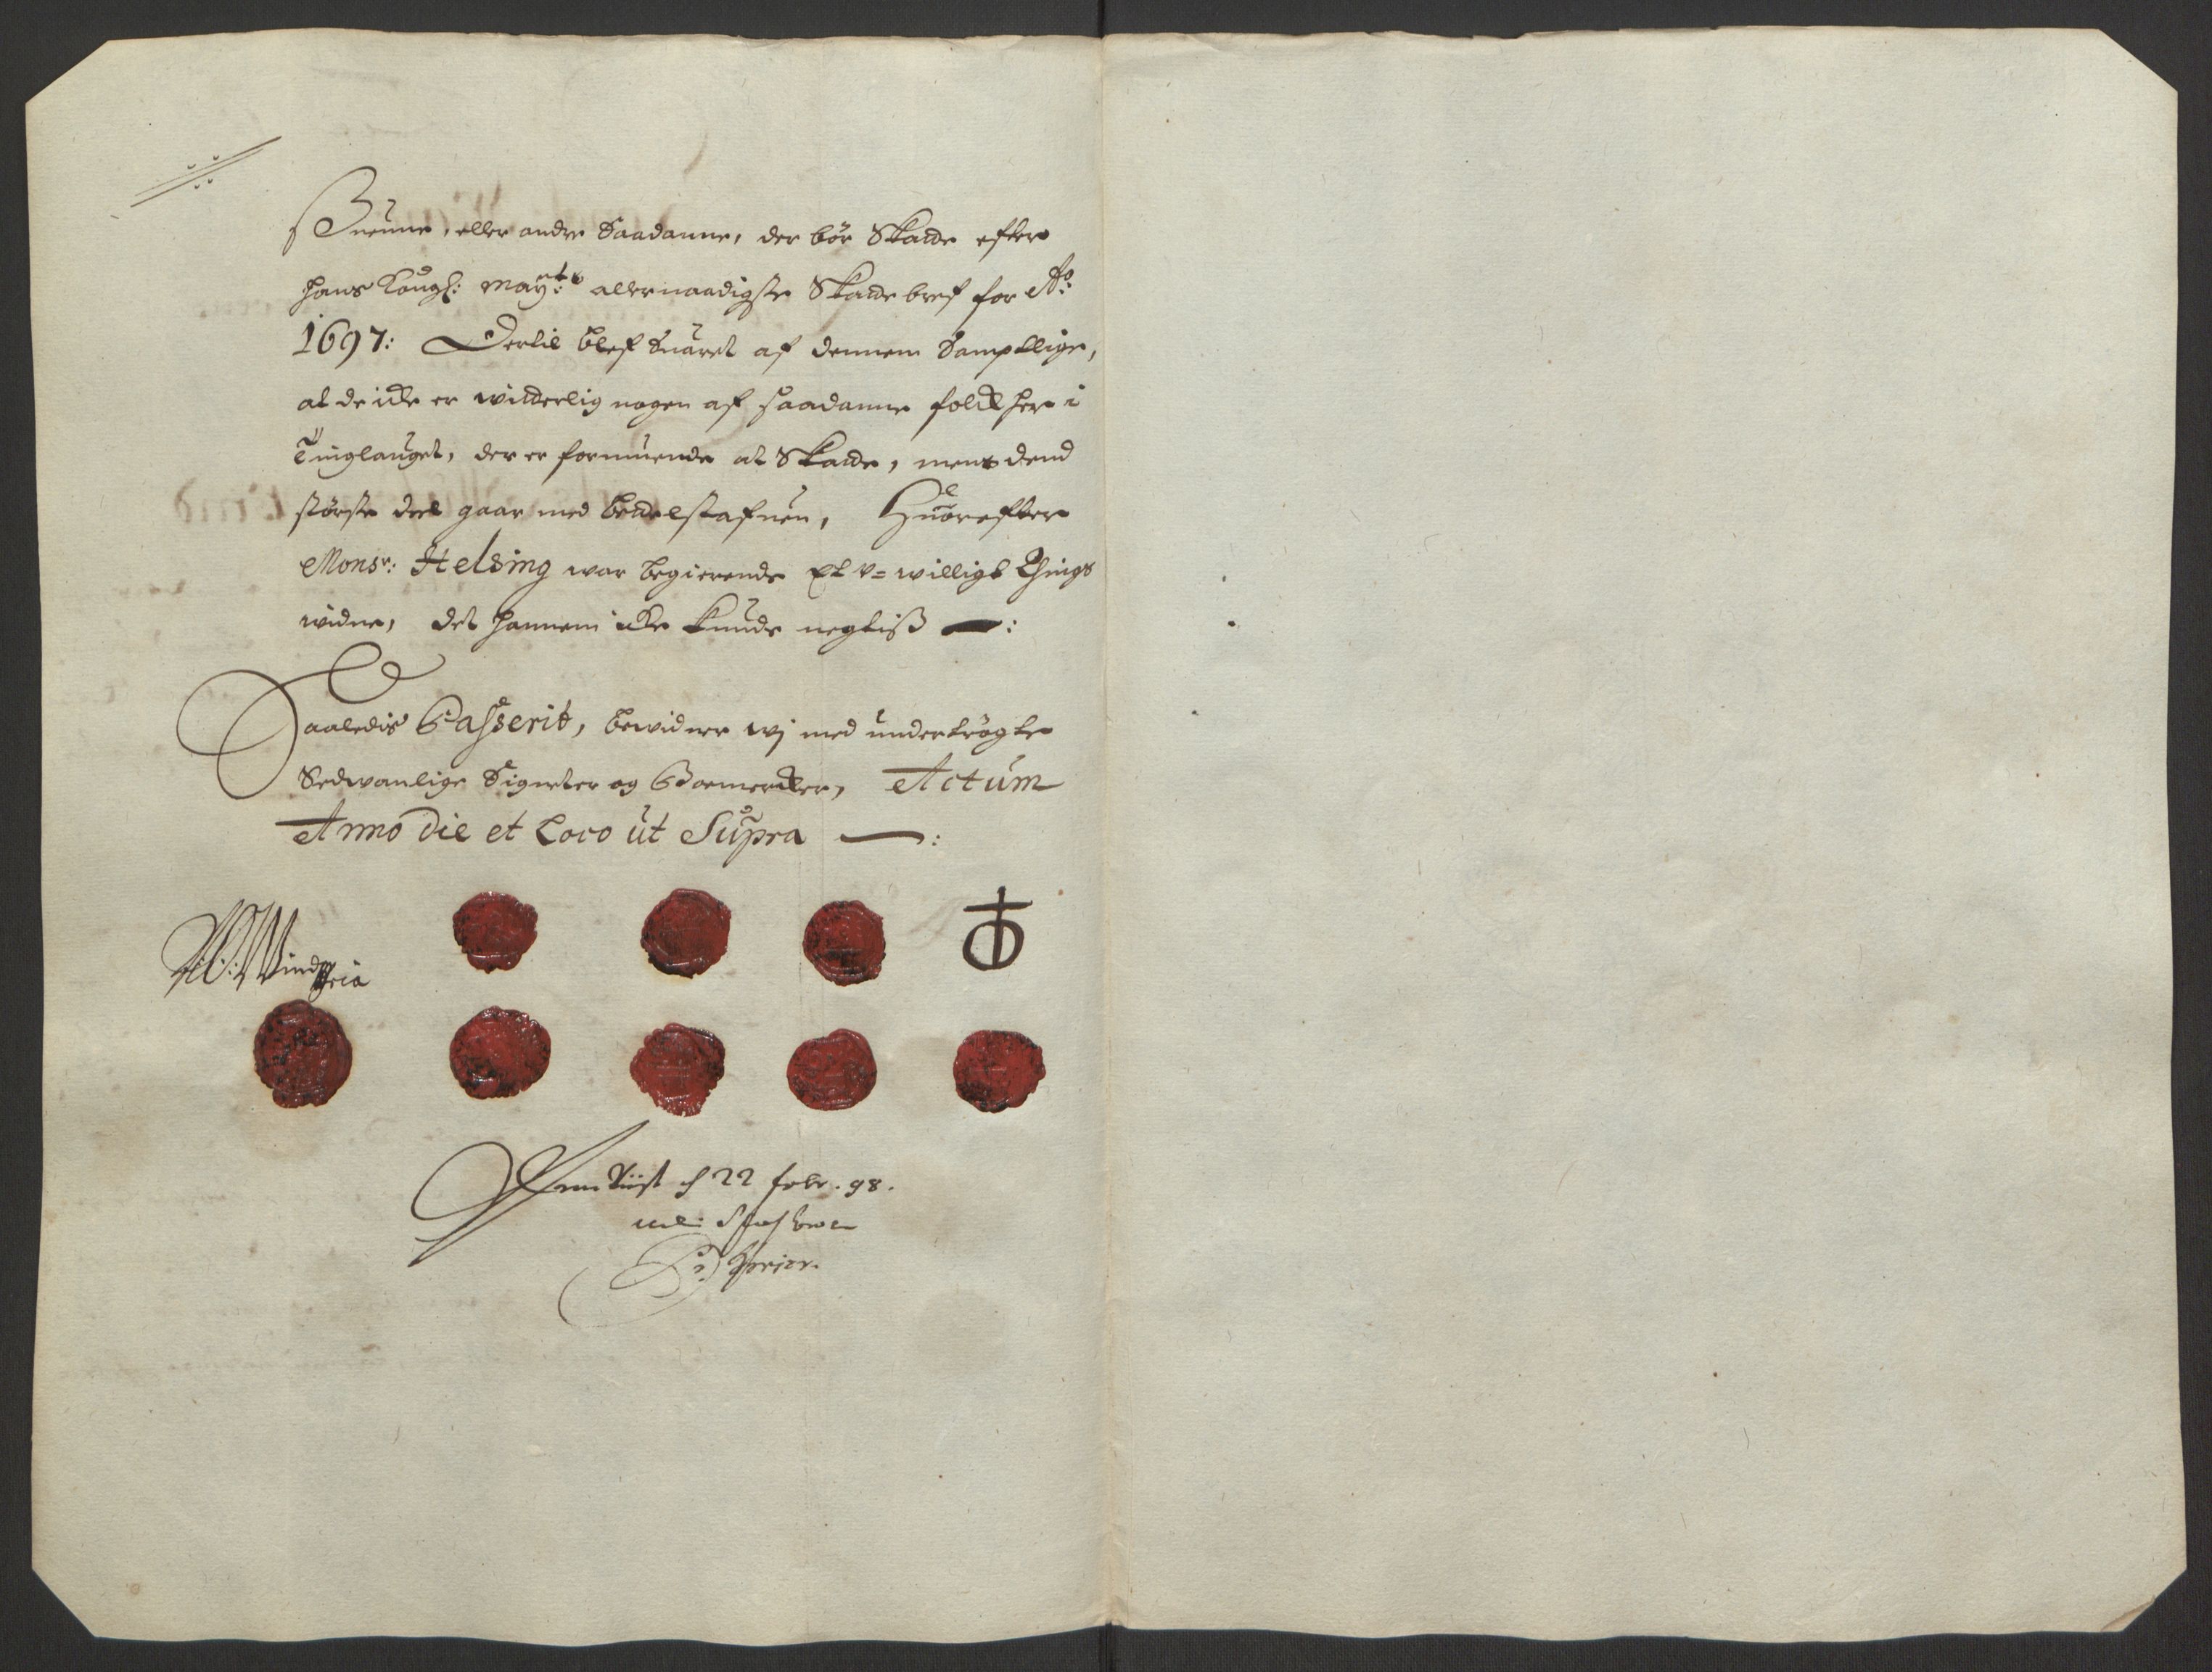 Suenne, eller andre Saadanne, der bör Skatte efter
hans Kongl: Mayts: allernaadigste Skattebref for Ao:
1697: Dertil blef Suaret af dennem Samptlige,
at de icke er witterlig nogen af saadanne folck her i
Tinglauget, der er formuende at Skatte, mens dend
störste deel gaar med bettelstafuen, Huorefter
Monsr: Helsing war begierende Et u=willigt Things
widne, det hannem icke kunde negtiß —:
Saaledis Passerit, bewidner wj med undertrögte
Sedwanlige Signeter og Boemercker, Actum
Anno die et Loco ut Supra —:
22 febr. 98.